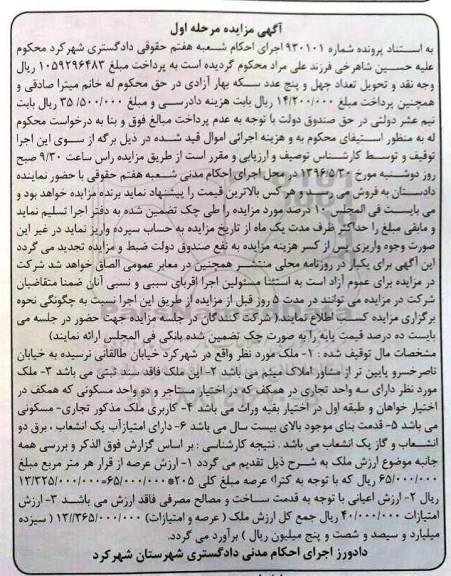 آگهی مزایده مرحله اول
به استناد پرونده شماره ۹۳۰۱۰۱ اجرای احکام شعبه هفتم حقوقی دادگستری شهرکرد محکوم
علیه حسین شاهرخی فرزند علی مراد محکوم گردیده است به پرداخت مبلغ ۱۰۵۹۲۹۶۴۸۳ ریال
وجه نقد و تحویل تعداد چهل و پنج عدد سکه بهار آزادی در حق محکوم له خانم میترا صادقی و
همچنین پرداخت مبلغ ۱۴/۲۰۰/۰۰۰ ریال بابت هزینه دادرسی و مبلغ ۳۵/۵۰۰/۰۰۰ ریال بابت
نیم عشر دولتی در حق صندوق دولت با توجه به عدم پرداخت مبالغ فوق و بنا به درخواست محکوم
له به منظور استیفای محکوم به و هزینه اجرائی اموال قید شده در ذیل برگه از سوی این اجرا
توقیف و توسط کارشناس توصیف و ارزیابی و مقرر است از طریق مزایده راس ساعت ۹/۳۰ صبح
روز دوشنبه مورخ ۱۳۹۶/۵/۳۰ در محل اجرای احکام مدنی شعبه هفتم حقوقی با حضور نماینده
دادستان به فروش می رسد و هر کس بالاترین قیمت را پیشنهاد نماید برنده مزایده خواهد بود و
می بایست فی المجلس ۱۰ درصد مورد مزایده را طی چک تضمین شده به دفتر اجرا تسلیم نماید
و مابقی مبلغ را حداکثر ظرف مدت یک ماه از تاریخ مزایده به حساب سپرده واریز نماید در غیر این
صورت وجوه واریزی پس از کسر هزینه مزایده به نفع صندوق دولت ضبط و مزایده تجدید می گردد
این آگهی برای یکبار در روزنامه محلی منتشر همچنین در معابر عمومی الصاق خواهد شد شرکت
در مزایده برای عموم آزاد است به استثنا مسئولین اجرا اقربای سببی و نسبی آنان ضمنا متقاضیان
شرکت در مزایده می توانند در مدت ۵ روز قبل از مزایده از طریق این اجرا نسبت به چگونگی نحوه
برگزاری مزایده کسب اطلاع نمایند.( شرکت کنندگان در جلسه مزایده جهت حضور در جلسه می
بایست ده درصد قیمت پایه را به صورت چک تضمین شده بانکی فی المجلس ارائه نمایند)
مشخصات مال توقیف شده : ۱- ملک مورد نظر واقع در شهرکرد خیابان طالقانی نرسیده به خیابان
ناصرخسرو پایین تر از مشاور املاک میثم می باشد ۲- این ملک فاقد سند ثبتی می باشد ۳- ملک
مورد نظر دارای سه واحد تجاری در همکف که در اختیار مستاجر و دو واحد مسکونی که همکف در
اختیار خواهان و طبقه اول در اختیار بقیه وراث می باشد ۴- کاربری ملک مذکور تجاری- مسکونی
می باشد ۵- قدمت بنای موجود بالای بیست سال می باشد ۶- دارای امتیاز آب یک انشعاب ، برق دو
انشعاب و گاز یک انشعاب می باشد . نتیجه کارشناسی : بر اساس گزارش فوق الذکر و بررسی همه
جانبه موضوع ارزش ملک به شرح ذیل تقدیم می گردد ۱- ارزش عرصه از قرار هر متر مربع مبلغ
۶۵/۰۰۰/۰۰۰ ریال که با توجه به کنترل عرصه مبلغ کلی ۲۰۵*۶۵/۰۰۰/۰۰۰=۱۳/۳۲۵/۰۰۰/۰۰۰
ریال ۲- ارزش اعیانی با توجه به قدمت ساخت و مصالح مصرفی فاقد ارزش می باشد ۳- ارزش
امتیازات ۴۰/۰۰۰/۰۰۰ ریال جمع کل ارزش ملک ( عرصه و امتیازات) ۱۳//۳۶۵/۰۰۰/۰۰۰ ( سیزده
میلیارد و سیصد و شصت و پنج میلیون ریال ) برآورد می گردد.
دادورز اجرای احکام مدنی دادگستری شهرستان شهرکرد